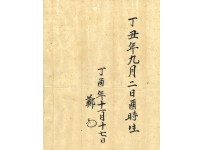 丁丑年九月二日酉時生
丁酉年十一月十七日
鄭